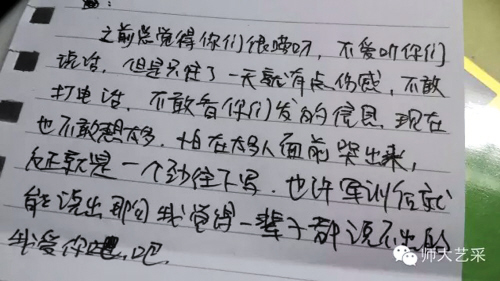 之前总觉得你们很啰嗦，不爱听你们
说话，但是只住了一天就有点伤感，不敢
打电话，不敢看你们发的信息，现在
也不敢想太多，怕在太多人面前哭出来，
反正就是一个劲往下写，也许军训后就
能说出那句我觉得一辈子都说不出的
我爱你吧。
师大艺采